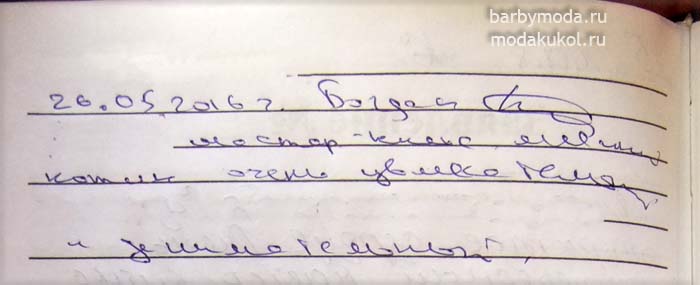 barbymoda.ru
modakukol.ru
26.05.2016 г. Богдан
мастер-класс
котик очень увлекательный
и занимательный,